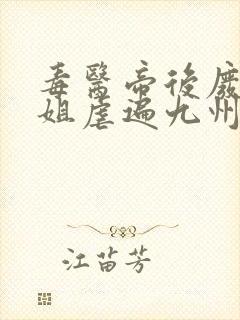 毒醫帝後廢
姐虐遍九州
江苗芳